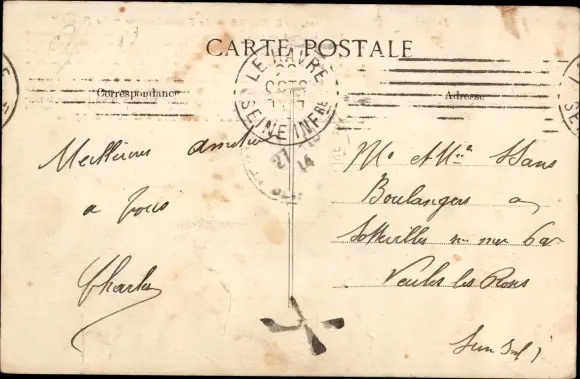 CARTE POSTALE
Correspondance
Adresse
LE HAVRE
SEINE INFRE
27
14
Meilleures amitiés
a tous
Charles
Mr et Mme
Boulangers a
Sotteville
Veules les Roses
Sein Inf